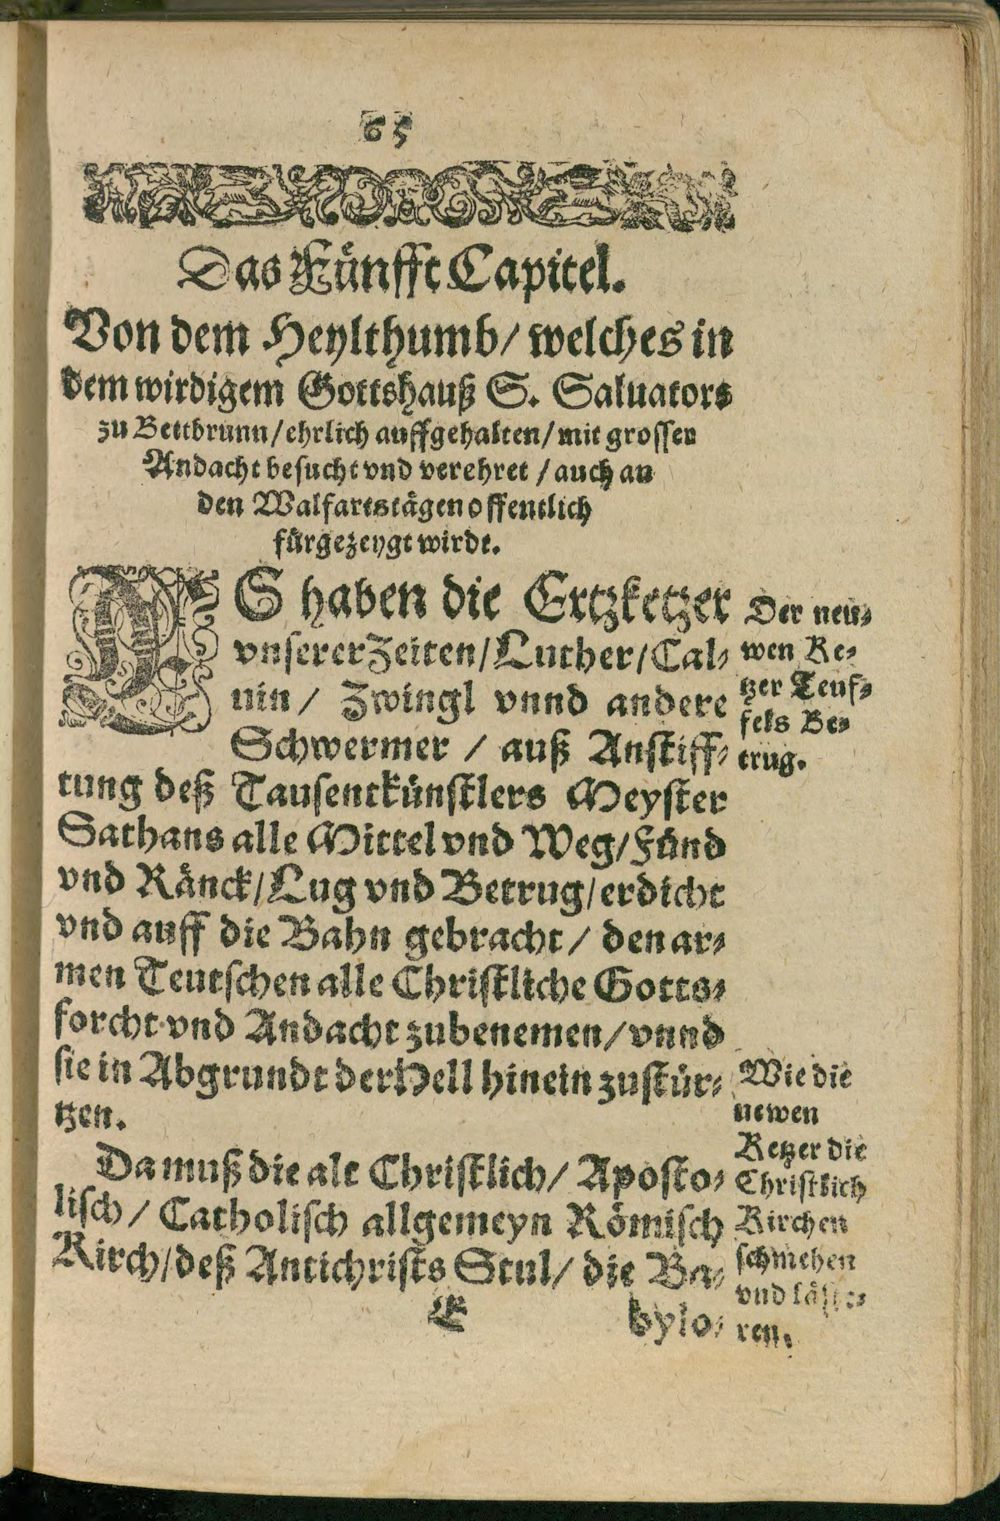 65
Das Fünfft Capitel.
Von dem Heylthumb/ welches in
dem wirdigem Gottshauß S. Saluators
zu Bettbrunn/ ehrlich auffgehalten/ mit grossen
Andacht besucht vnd verehret / auch an
den Walfartstägen offentlich
fürgezeygt wirdt.
ES haben die Ertzketzer
vnserer Zeiten/ Luther/ Cal-
uin / Zwingl vnnd andere
Schwermer / auß Anstiff-
tung deß Tausentkünstlers Meyster
Sathans alle Mittel vnd Weg/ Fünd
vnd Ränck/ Lug vnd Betrug/ erdicht
vnd auff die Bahn gebracht / den ar-
men Teutschen alle Christliche Gotts-
forcht vnd Andacht zubenemen/ vnnd
sie in Abgrundt der Hell hinein zustür-
tzen.
Da muß die alt Christlich/ Aposto-
lisch / Catholisch allgemeyn Römisch
Kirch/ deß Antichrists Stul/ die Ba-
E bylo-
Der neu-
wen Ke-
tzer Teuf-
fels Be-
trug.
Wie die
newen
Ketzer die
Christlich
Kirchen
schmehen
vnd läste-
ren.